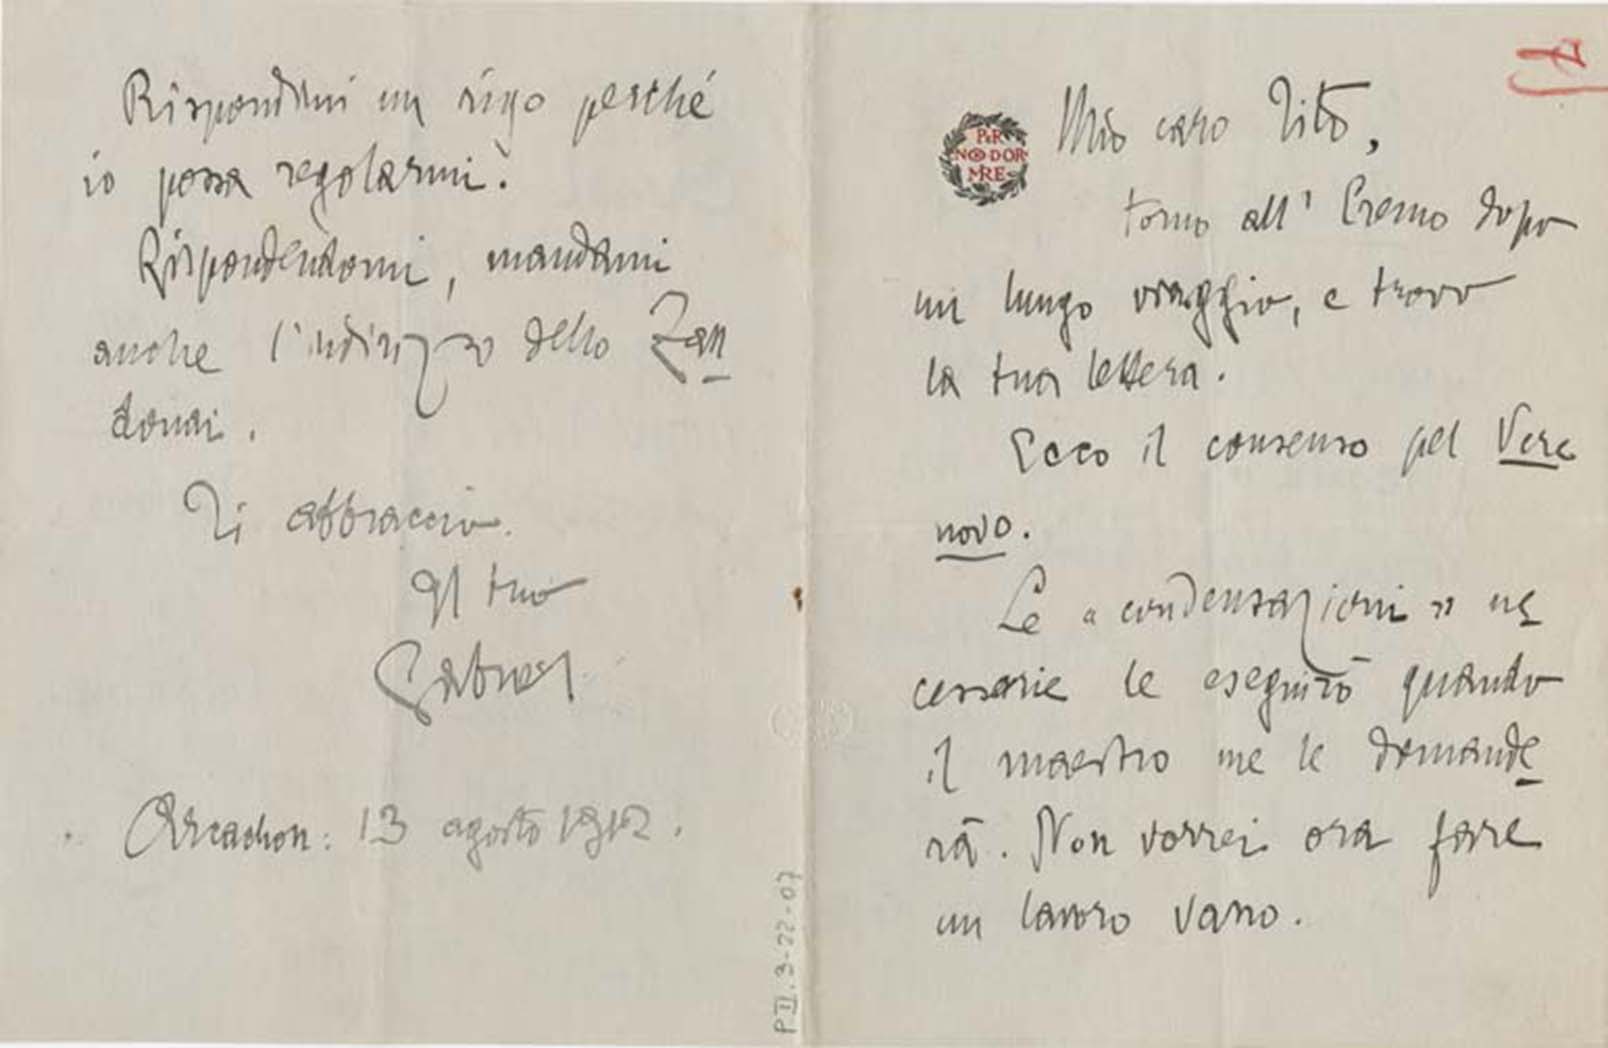 PER
NON DOR
MIRE
Mio caro Tito,
torno all' Eremo dopo
un lungo viaggio, e trovo
la tua lettera.
Ecco il consenso pel Vere
novo.
Le « condensazioni » ne
cessarie le eseguirò quando
il maestro me le domande
rà. Non vorrei ora fare
un lavoro vano.
Rispondimi un rigo perché
io possa regolarmi.
Rispondendomi, mandami
anche l'indirizzo dello Zan
donai.
Ti abbraccio.
Il tuo
Gabriel
Arcachon: 13 agosto 1912.
P II. 3-22-07